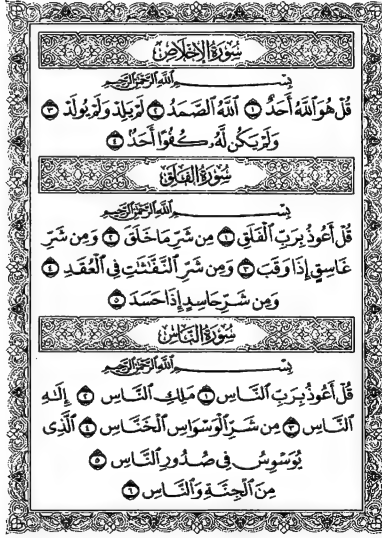 سُورَةُ الإِخْلَاصِ
بِسْمِ ٱللَّهِ ٱلرَّحْمَٰنِ ٱلرَّحِيمِ
قُلْ هُوَ ٱللَّهُ أَحَدٌ ۝١ ٱللَّهُ ٱلصَّمَدُ ۝٢ لَمْ يَلِدْ وَلَمْ يُولَدْ ۝٣
وَلَمْ يَكُن لَّهُۥ كُفُوًا أَحَدٌ ۝٤
سُورَةُ الْفَلَقِ
بِسْمِ ٱللَّهِ ٱلرَّحْمَٰنِ ٱلرَّحِيمِ
قُلْ أَعُوذُ بِرَبِّ ٱلْفَلَقِ ۝١ مِن شَرِّ مَا خَلَقَ ۝٢ وَمِن شَرِّ
غَاسِقٍ إِذَا وَقَبَ ۝٣ وَمِن شَرِّ ٱلنَّفَّٰثَٰتِ فِى ٱلْعُقَدِ ۝٤
وَمِن شَرِّ حَاسِدٍ إِذَا حَسَدَ ۝٥
سُورَةُ النَّاسِ
بِسْمِ ٱللَّهِ ٱلرَّحْمَٰنِ ٱلرَّحِيمِ
قُلْ أَعُوذُ بِرَبِّ ٱلنَّاسِ ۝١ مَلِكِ ٱلنَّاسِ ۝٢ إِلَٰهِ
ٱلنَّاسِ ۝٣ مِن شَرِّ ٱلْوَسْوَاسِ ٱلْخَنَّاسِ ۝٤ ٱلَّذِى
يُوَسْوِسُ فِى صُدُورِ ٱلنَّاسِ ۝٥
مِنَ ٱلْجِنَّةِ وَٱلنَّاسِ ۝٦